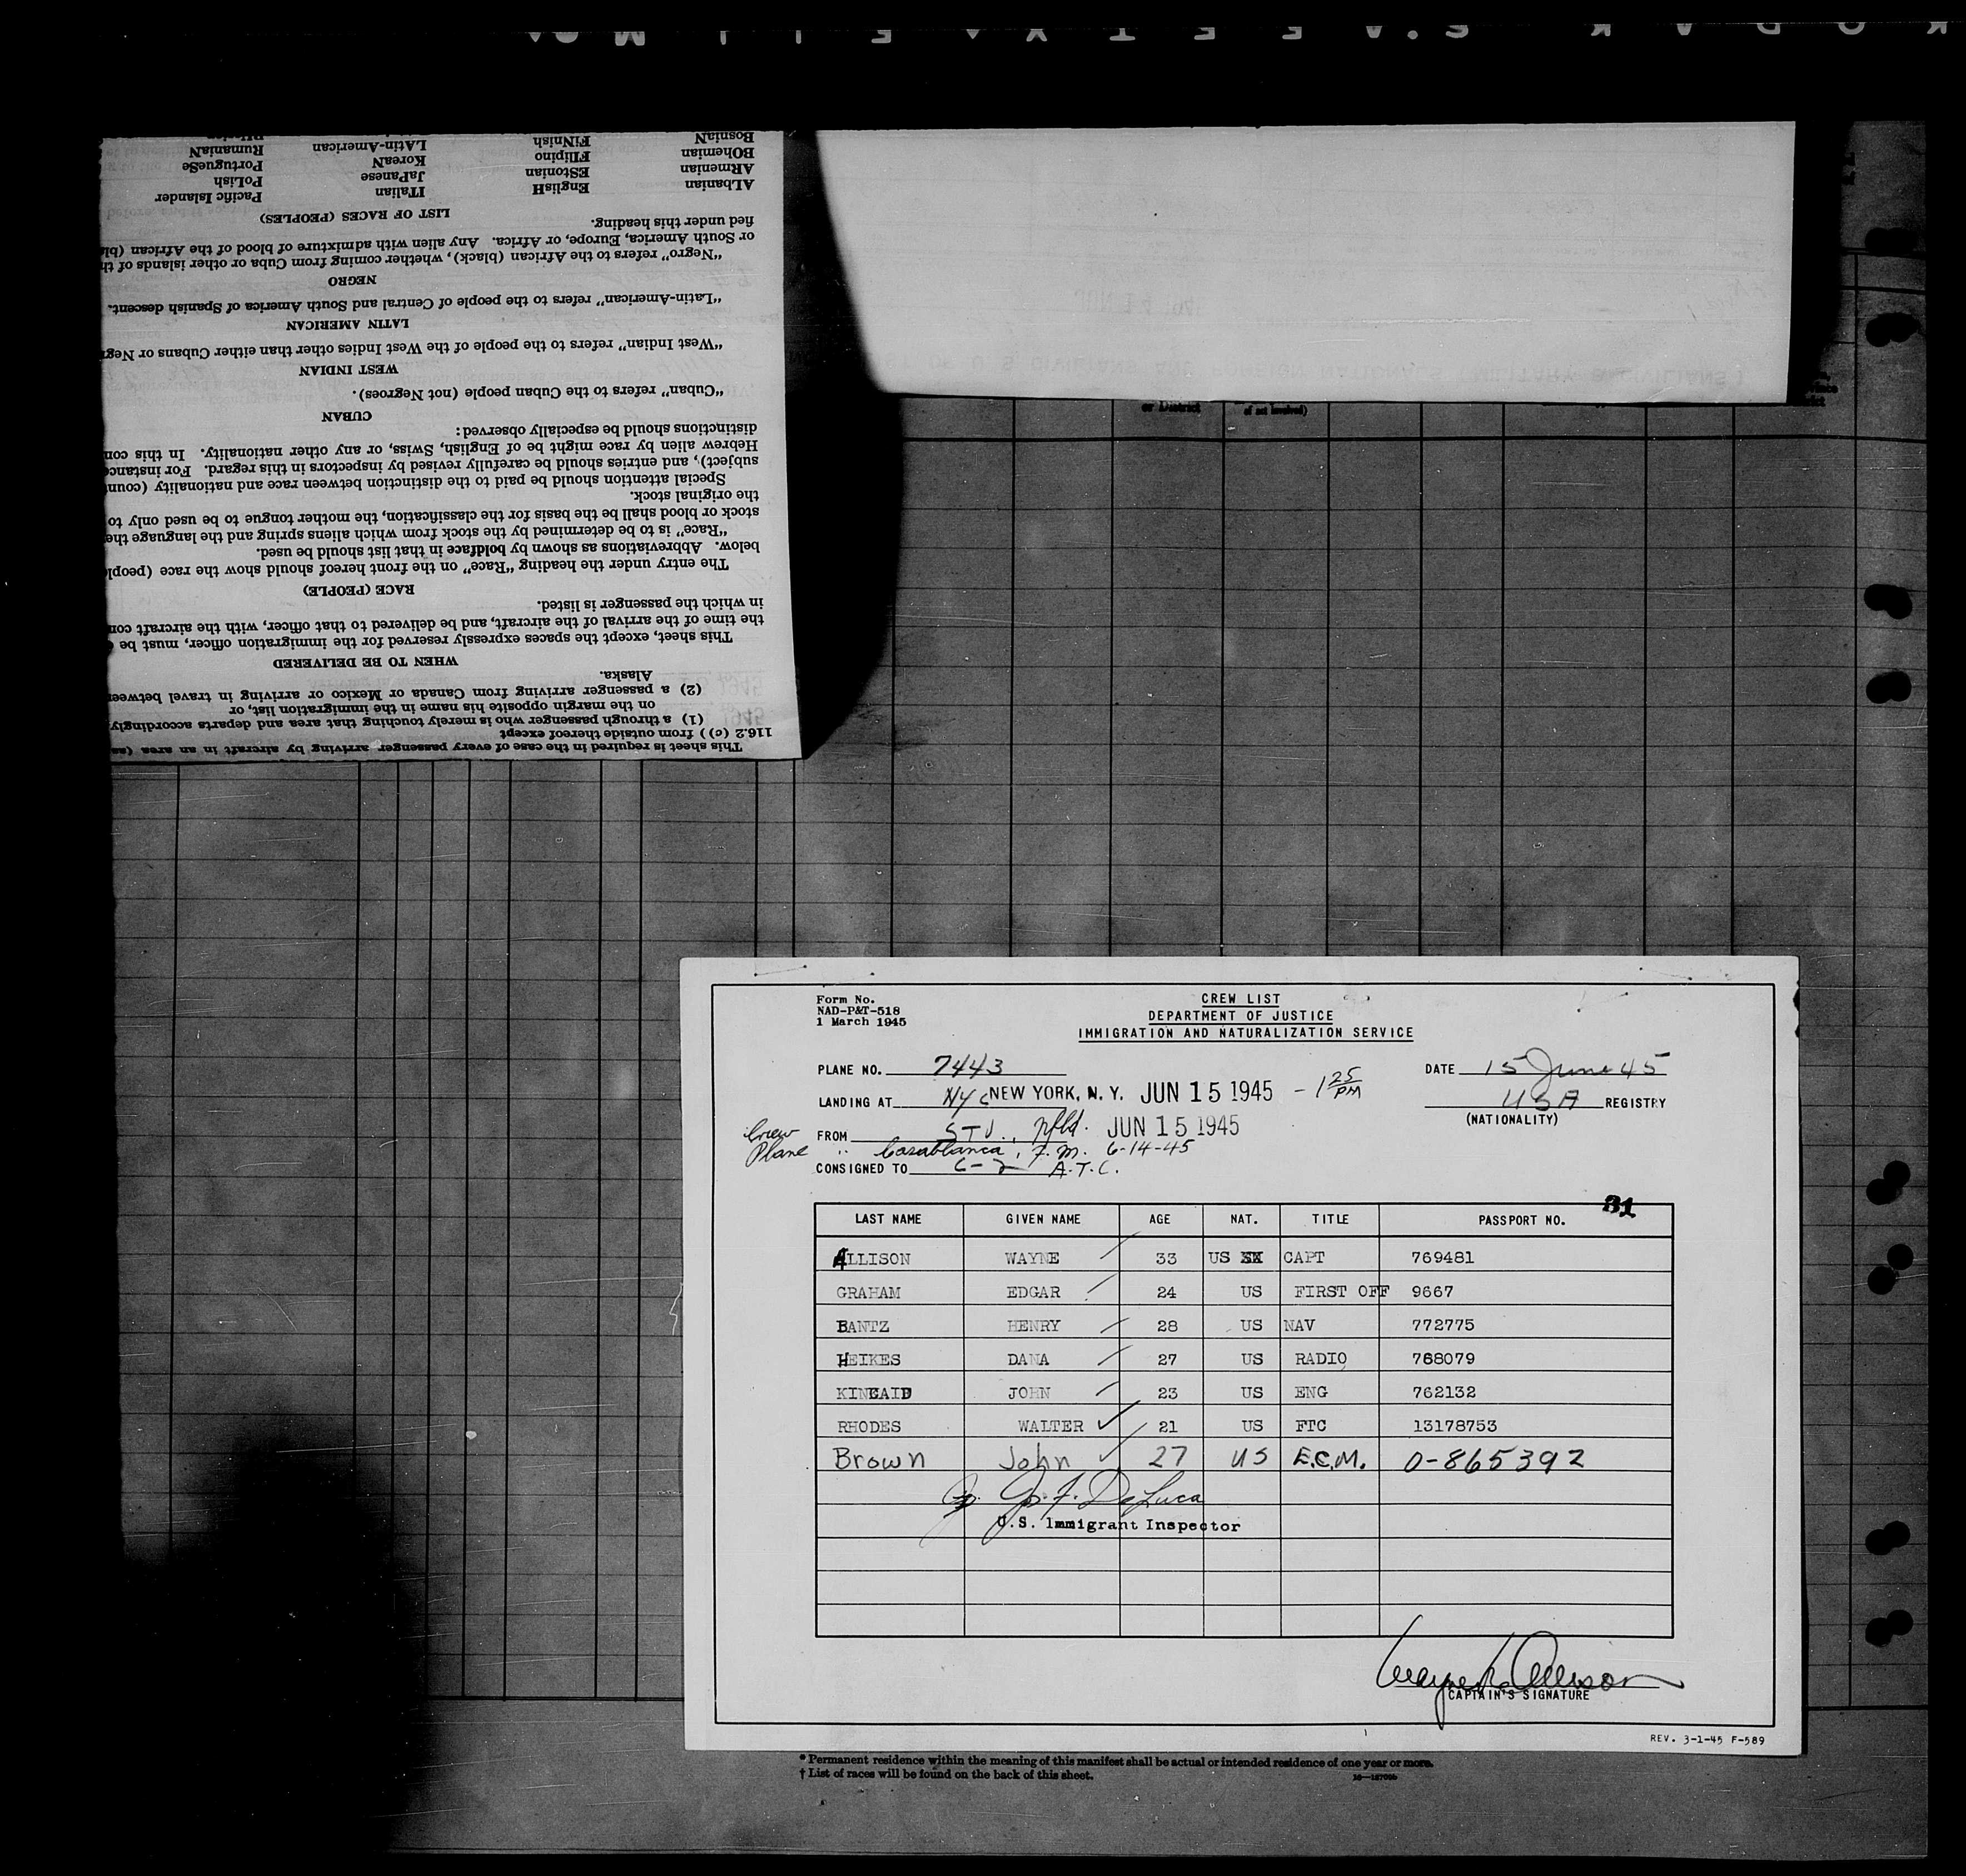 KODAK SAFETY FILM
Bosnian FINnish LAtin-American RUssian
BOhemian FIlipino KoreaN RumaniaN
ARmenian EStonian JaPanese PortugueSe
ALbanian EnglisH ITalian PoLish
Pacific Islander
LIST OF RACES (PEOPLES)
fied under this heading.
or South America, Europe, or Africa. Any alien with admixture of blood of the African (bl
"Negro" refers to the African (black), whether coming from Cuba or other islands of th
NEGRO
"Latin-American" refers to the people of Central and South America of Spanish descent.
LATIN AMERICAN
"West Indian" refers to the people of the West Indies other than either Cubans or Neg
WEST INDIAN
"Cuban" refers to the Cuban people (not Negroes).
CUBAN
distinctions should be especially observed:
Hebrew alien by race might be of English, Swiss, or any other nationality. In this con
subject), and entries should be carefully revised by inspectors in this regard. For instanc
Special attention should be paid to the distinction between race and nationality (coun
the original stock.
stock or blood shall be the basis for the classification, the mother tongue to be used only to
"Race" is to be determined by the stock from which aliens spring and the language the
below. Abbreviations as shown by boldface in that list should be used.
The entry under the heading "Race" on the front hereof should show the race (people
RACE (PEOPLE)
in which the passenger is listed.
the time of the arrival of the aircraft, and be delivered to that officer, with the aircraft com
This sheet, except the spaces expressly reserved for the immigration officer, must be
WHEN TO BE DELIVERED
Alaska.
(2) a passenger arriving from Canada or Mexico or arriving in travel between
on the margin opposite his name in the immigration list, or
(1) a through passenger who is merely touching that area and departs accordingly
116.2 (c)) from outside thereof except
This sheet is required in the case of every passenger arriving by aircraft in an area (as
or District of act involved)
Form No. CREW LIST
NAD-P&T-518 DEPARTMENT OF JUSTICE
1 March 1945 IMMIGRATION AND NATURALIZATION SERVICE
PLANE NO. 7443 DATE 15 June 45
LANDING AT NYC NEW YORK, N. Y. JUN 15 1945 - 1 25 PM USA REGISTRY
(NATIONALITY)
Crew FROM STJ., Nfld. JUN 15 1945
Plane " Casablanca, F.M. 6-14-45
CONSIGNED TO C-2 A.T.C.
31
LAST NAME GIVEN NAME AGE NAT. TITLE PASSPORT NO.
ALLISON WAYNE 33 US CAPT 769481
GRAHAM EDGAR 24 US FIRST OFF 9667
BANTZ HENRY 28 US NAV 772775
HEIKES DANA 27 US RADIO 768079
KINCAID JOHN 23 US ENG 762132
RHODES WALTER 21 US FTC 13178753
Brown John 27 US E.C.M. O-865392
Jos. F. DeLuca
U.S. Immigrant Inspector
Wayne L Allison
CAPTAIN'S SIGNATURE
REV. 3-1-45 F-589
* Permanent residence within the meaning of this manifest shall be actual or intended residence of one year or more.
† List of races will be found on the back of this sheet.